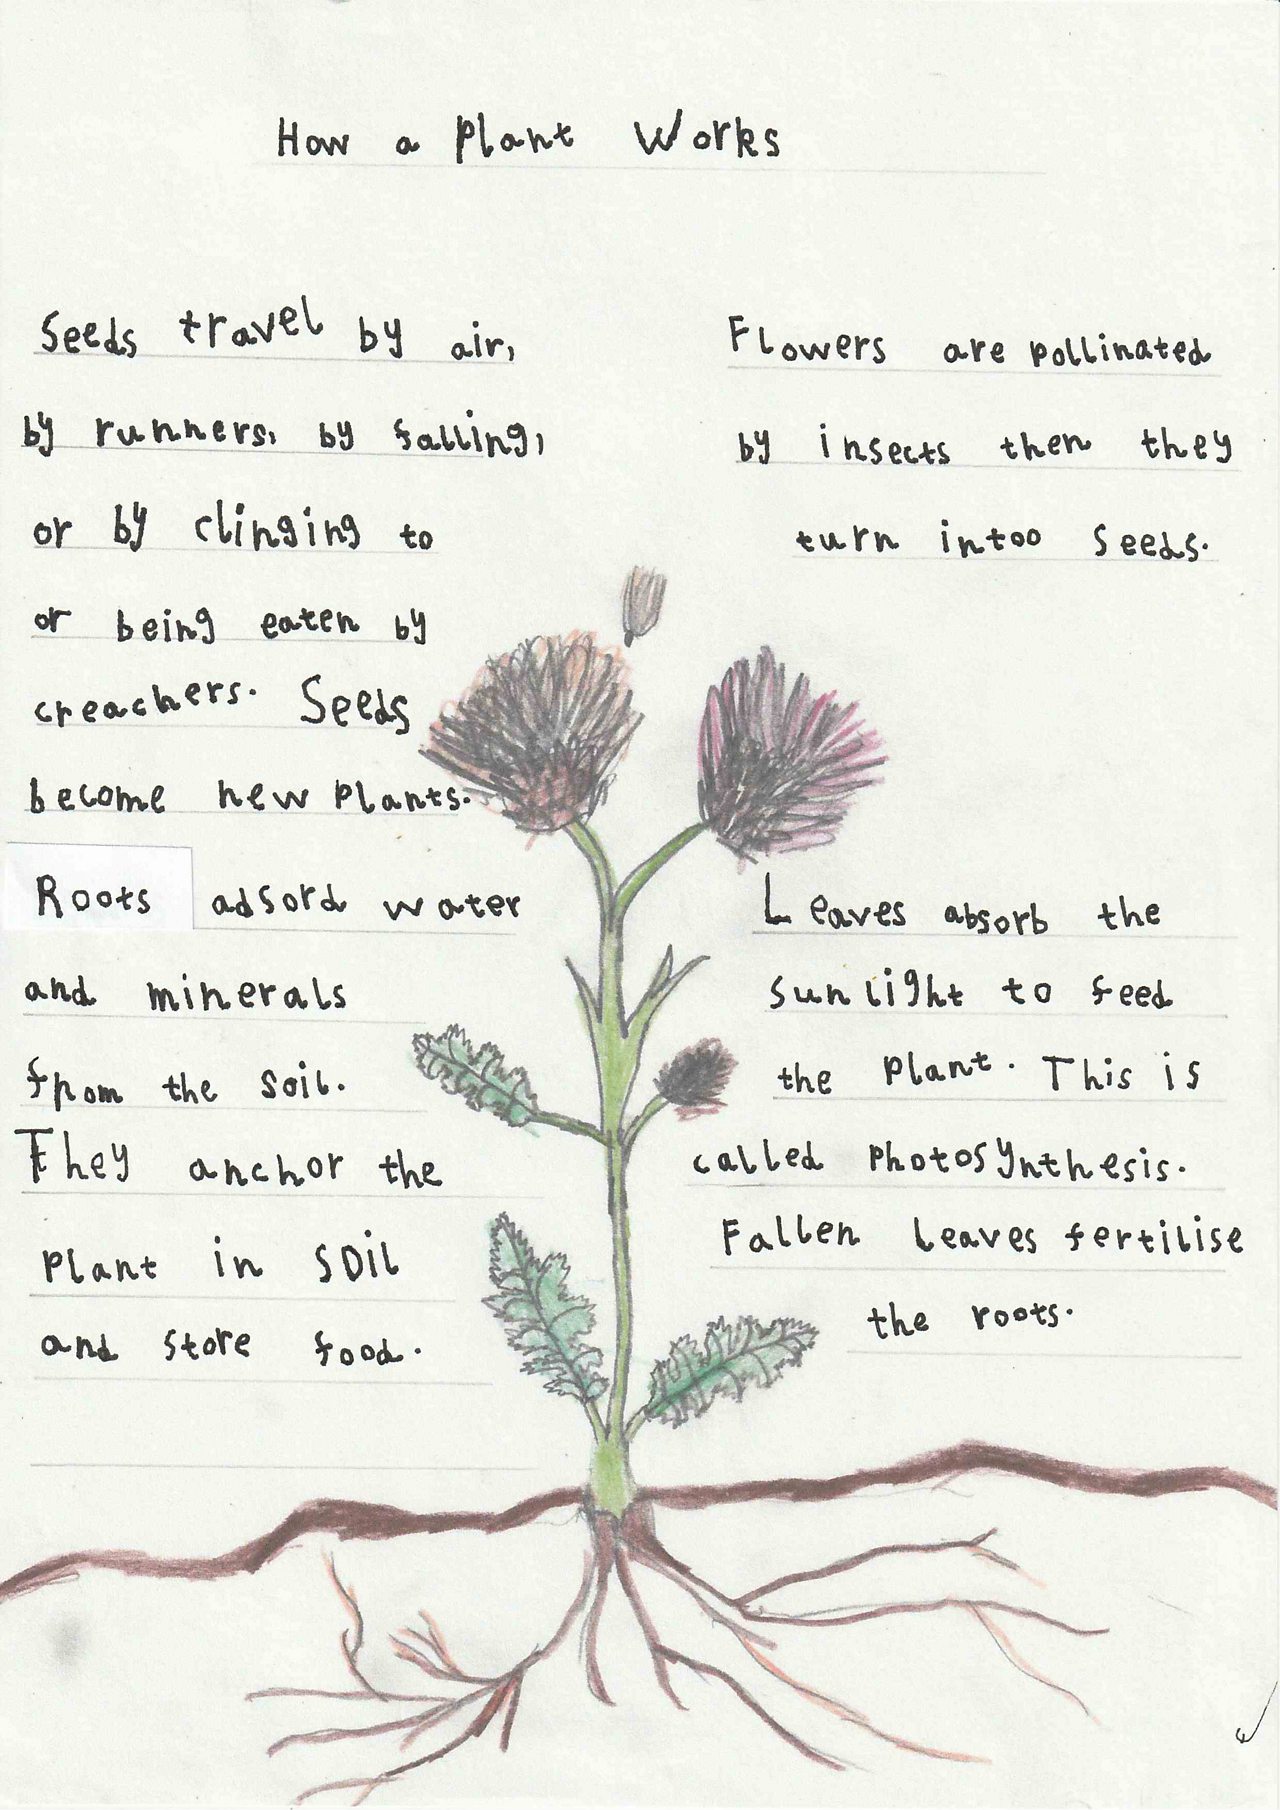 How a Plant Works
Seeds travel by air,
by runners, by falling,
or by clinging to
or being eaten by
creachers. Seeds
become new plants.
Roots adsord water
and minerals
from the soil.
They anchor the
plant in soil
and store food.
Flowers are pollinated
by insects then they
turn intoo seeds.
Leaves absorb the
sunlight to feed
the plant. This is
called photosynthesis.
Fallen leaves fertilise
the roots.